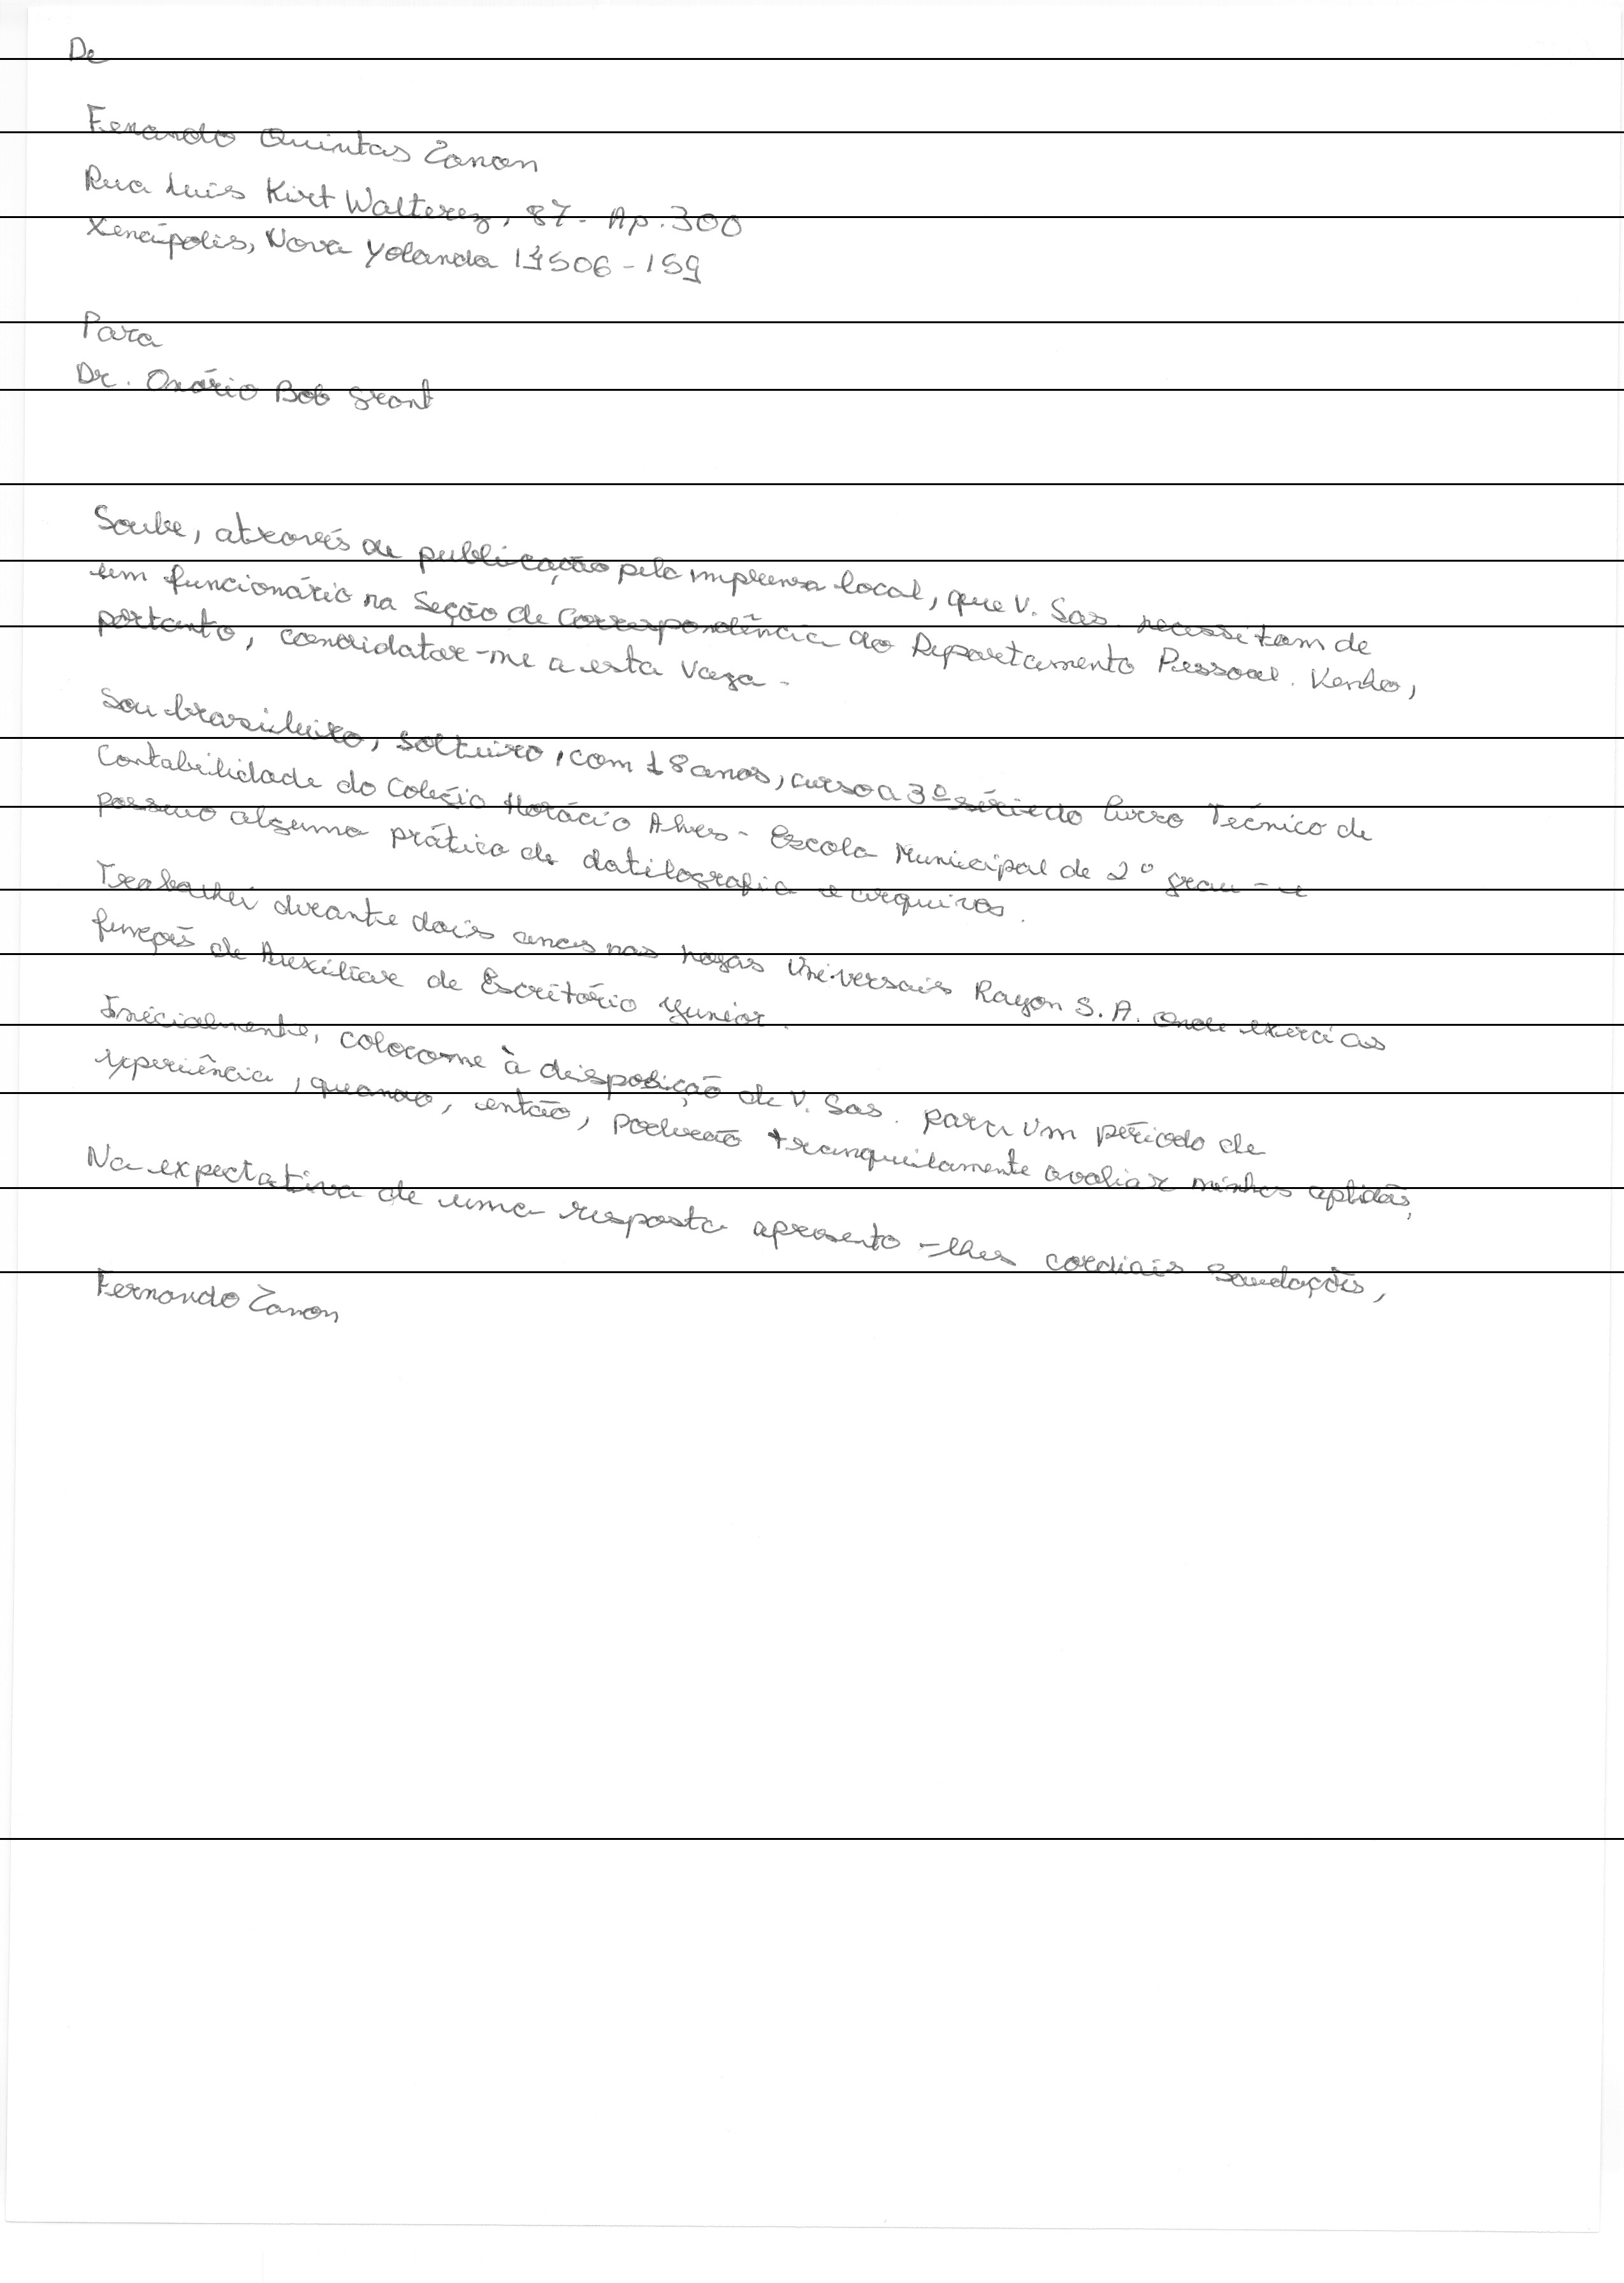 De
Fenando Quintas Zanon
Rua Luis Kirt Walterez, 87 - Ap. 300
Xenápolis, Nova Yolanda 506-159
Para
Dr. Onário Bob Grant
Soube, através de publicação pela imprensa local, que V. Sas. necessitam de
um funcionário na Seção de Correspondência do Departamento Pessoal. Venho,
portanto, candidatar-me a esta vaga.
Sou brasileiro, solteiro, com 18 anos, curso a 3ª série do Curso Técnico de
Contabilidade do Colégio Horácio Alves - Escola Municipal de 2º grau - e
possuo alguma prática de datilografia e arquivos.
Trabalhei durante dois anos nas Universais Rayon S. A. onde exerci as
funções de Auxiliar de Escritório Yunior.
Inicialmente, coloco-me à disposição de V. Sas. para um período de
experiência, quando, então, poderão tranquilamente avaliar minhas aptidões,
Na expectativa de uma resposta apresento-lhes cordiais saudações,
Fernando Zanon